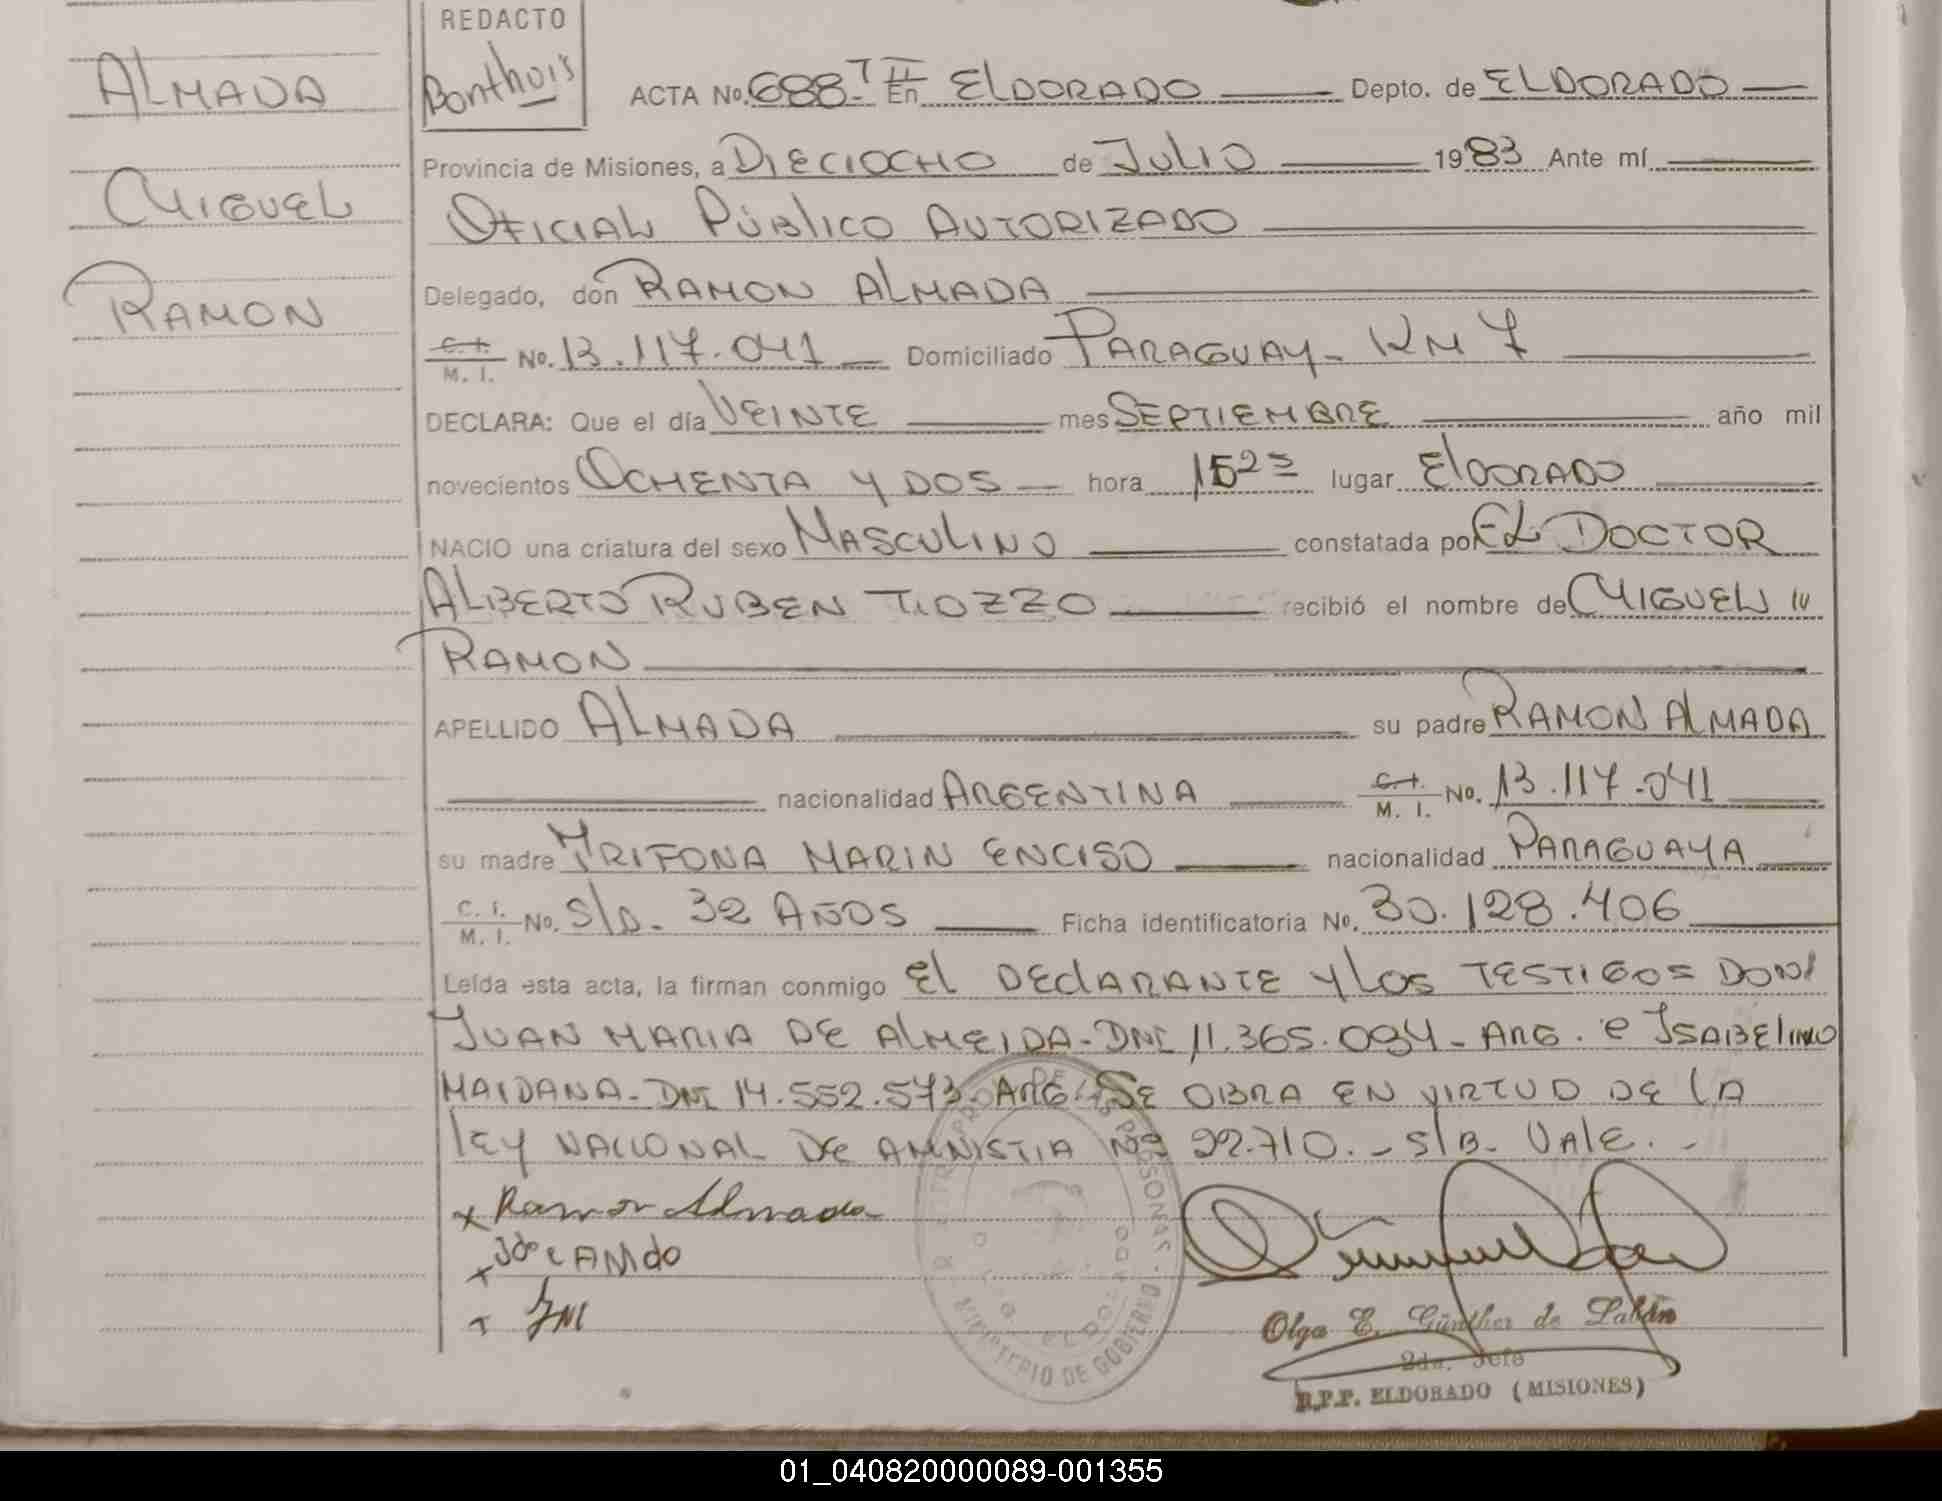 REDACTO
Bonthuis
ALMADA
MIGUEL
RAMON
ACTA No. 688-T II En ELDORADO Depto. de ELDORADO
Provincia de Misiones, a DIECIOCHO de JULIO 1983 Ante mí
OFICIAL PÚBLICO AUTORIZADO
Delegado, don RAMON ALMADA
C. I. M. I. No. 13.117.041 Domiciliado PARAGUAY - KM 7
DECLARA: Que el día VEINTE mes SEPTIEMBRE año mil
novecientos OCHENTA Y DOS hora lugar ELDORADO
NACIO una criatura del sexo MASCULINO constatada por EL DOCTOR
ALBERTO RUBEN TIOZZO recibió el nombre de MIGUEL
RAMON
APELLIDO ALMADA su padre RAMON ALMADA
nacionalidad ARGENTINA C. I. M. I. No. 13.117.041
su madre TRIFONA MARIN ENCISO nacionalidad PARAGUAYA
C. I. M. I. No. S/D. 32 AÑOS Ficha identificatoria No. 30.128.406
Leída esta acta, la firman conmigo EL DECLARANTE Y LOS TESTIGOS DON
JUAN MARIA DE ALMEIDA - DNI 11.365.094 - ARG. e ISABELINO
MAIDANA - DNI 14.552.573 - ARG. SE OBRA EN VIRTUD DE LA
LEY NACIONAL DE AMNISTIA Nº 22.710. - S/B - VALE. -
x Ramon Almada
Olga E. Günther de Labán
2da. Jefe
R.P.P. ELDORADO (MISIONES)
MINISTERIO DE GOBIERNO
01_040820000089-001355